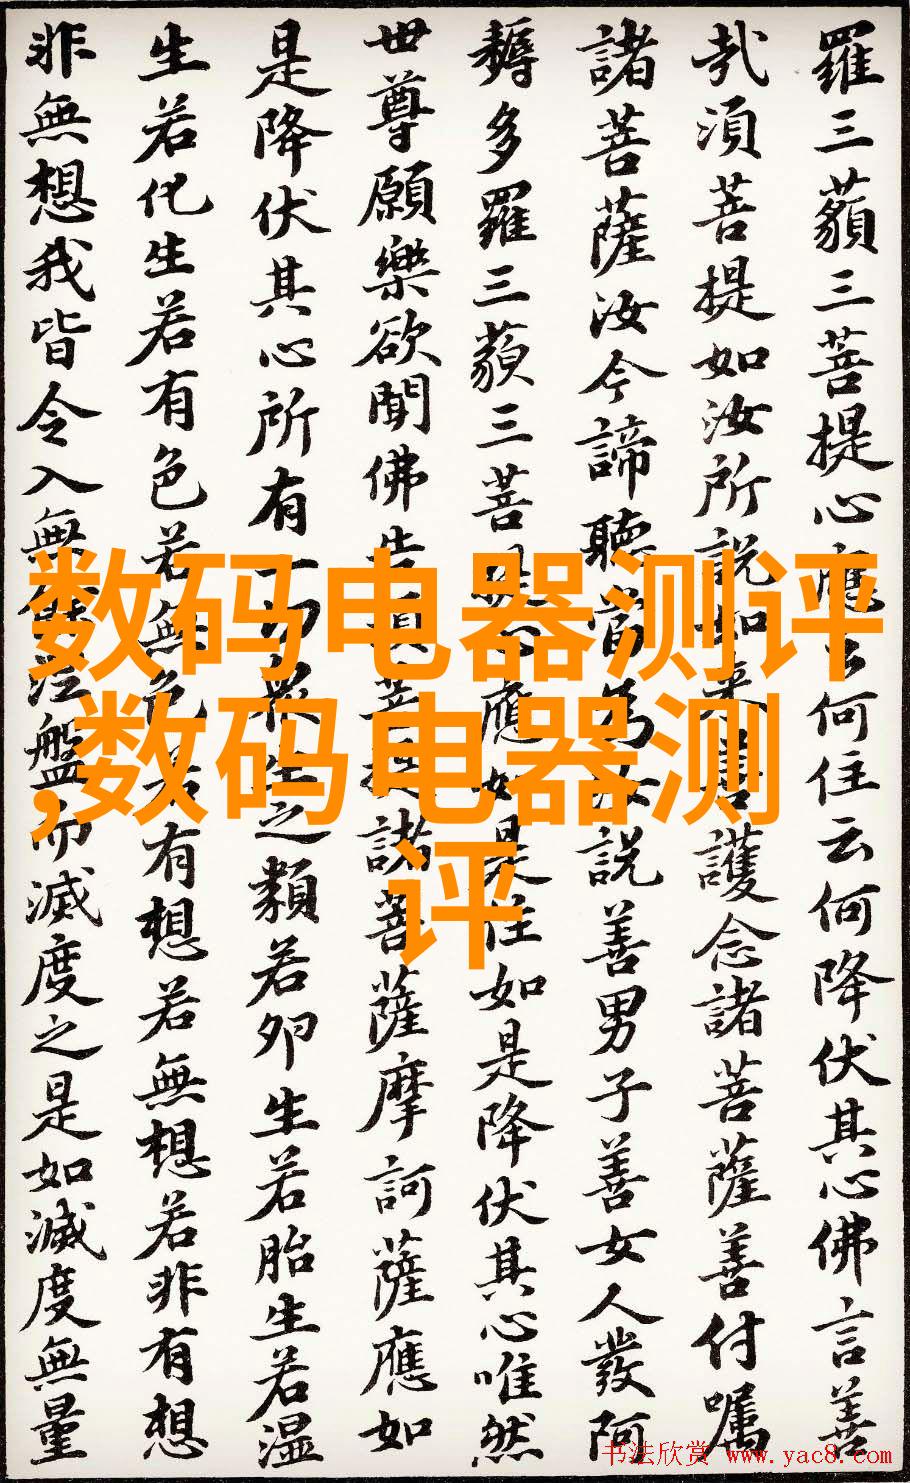 羅三藐三菩提心應云何住云何降伏其心佛言善
哉須菩提如汝所説如来善護念諸菩薩善付嘱
諸菩薩汝今諦聽當為汝説善男子善女人發阿
耨多羅三藐三菩提心應如是住如是降伏其心唯然
世尊願樂欲聞佛告須菩提諸菩薩摩訶薩應如
是降伏其心所有一切衆生之類若卵生若胎生若湿
生若化生若有色若無色若有想若無想若非有想
非無想我皆令入無餘涅盤而滅度之是如滅度無量
数码电器测评
,数码电器测
评
书法欣赏 www.yac8.com